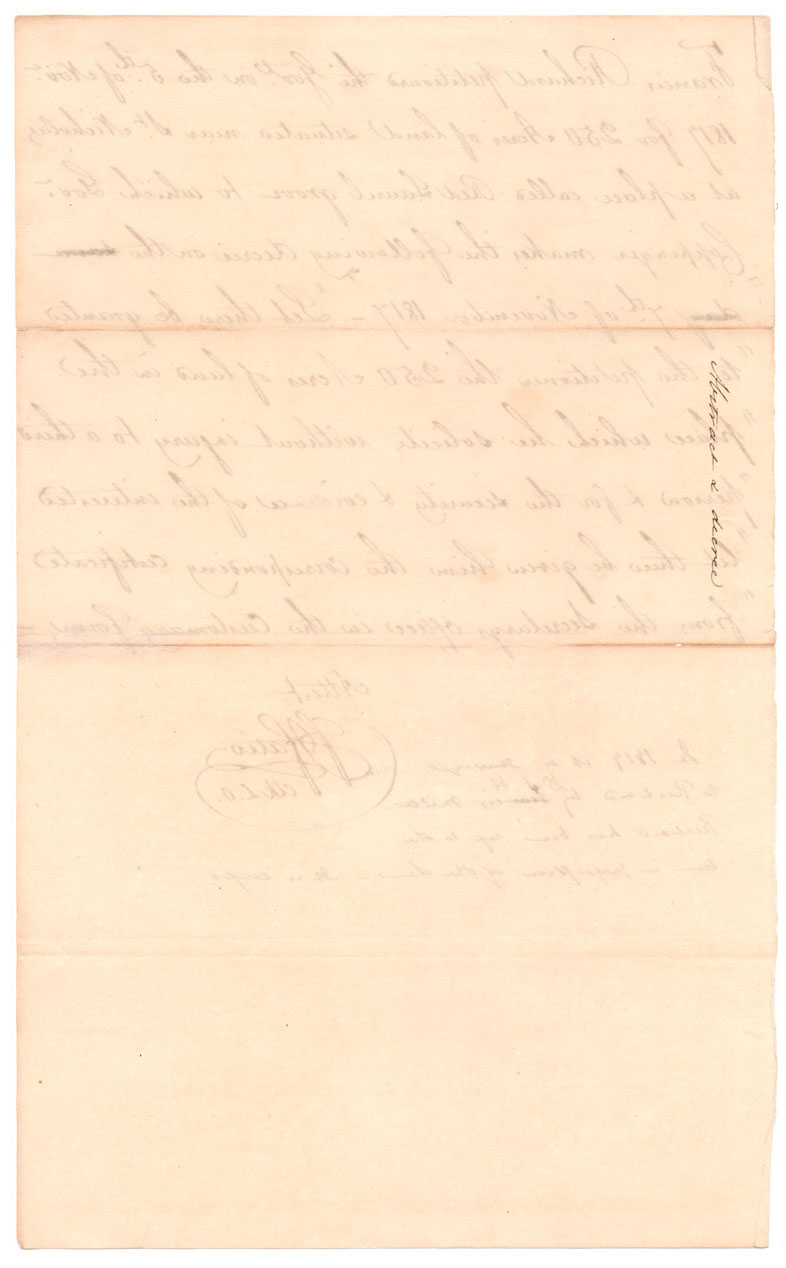 Francis Richard petitions the Govr. on the 5th of Novr.
1817 for 250 Acres of land situated near St. Nicholas,
at a place called Red Laurel grove to which Govr.
Coppinger makes the following decree on the
7th of November 1817 – "Let there be granted
"to the petitioner the 250 Acres of land in the
"place which he solicits, without injury to a third
"person & for the security & evidence of the interested
there be given him the corresponding certificate
"from the Secretarys office in the Customary form –
Attest
Fatio
In 1819
to Richard by
Richard has been up to the
in possession of the land
Abstract & decree